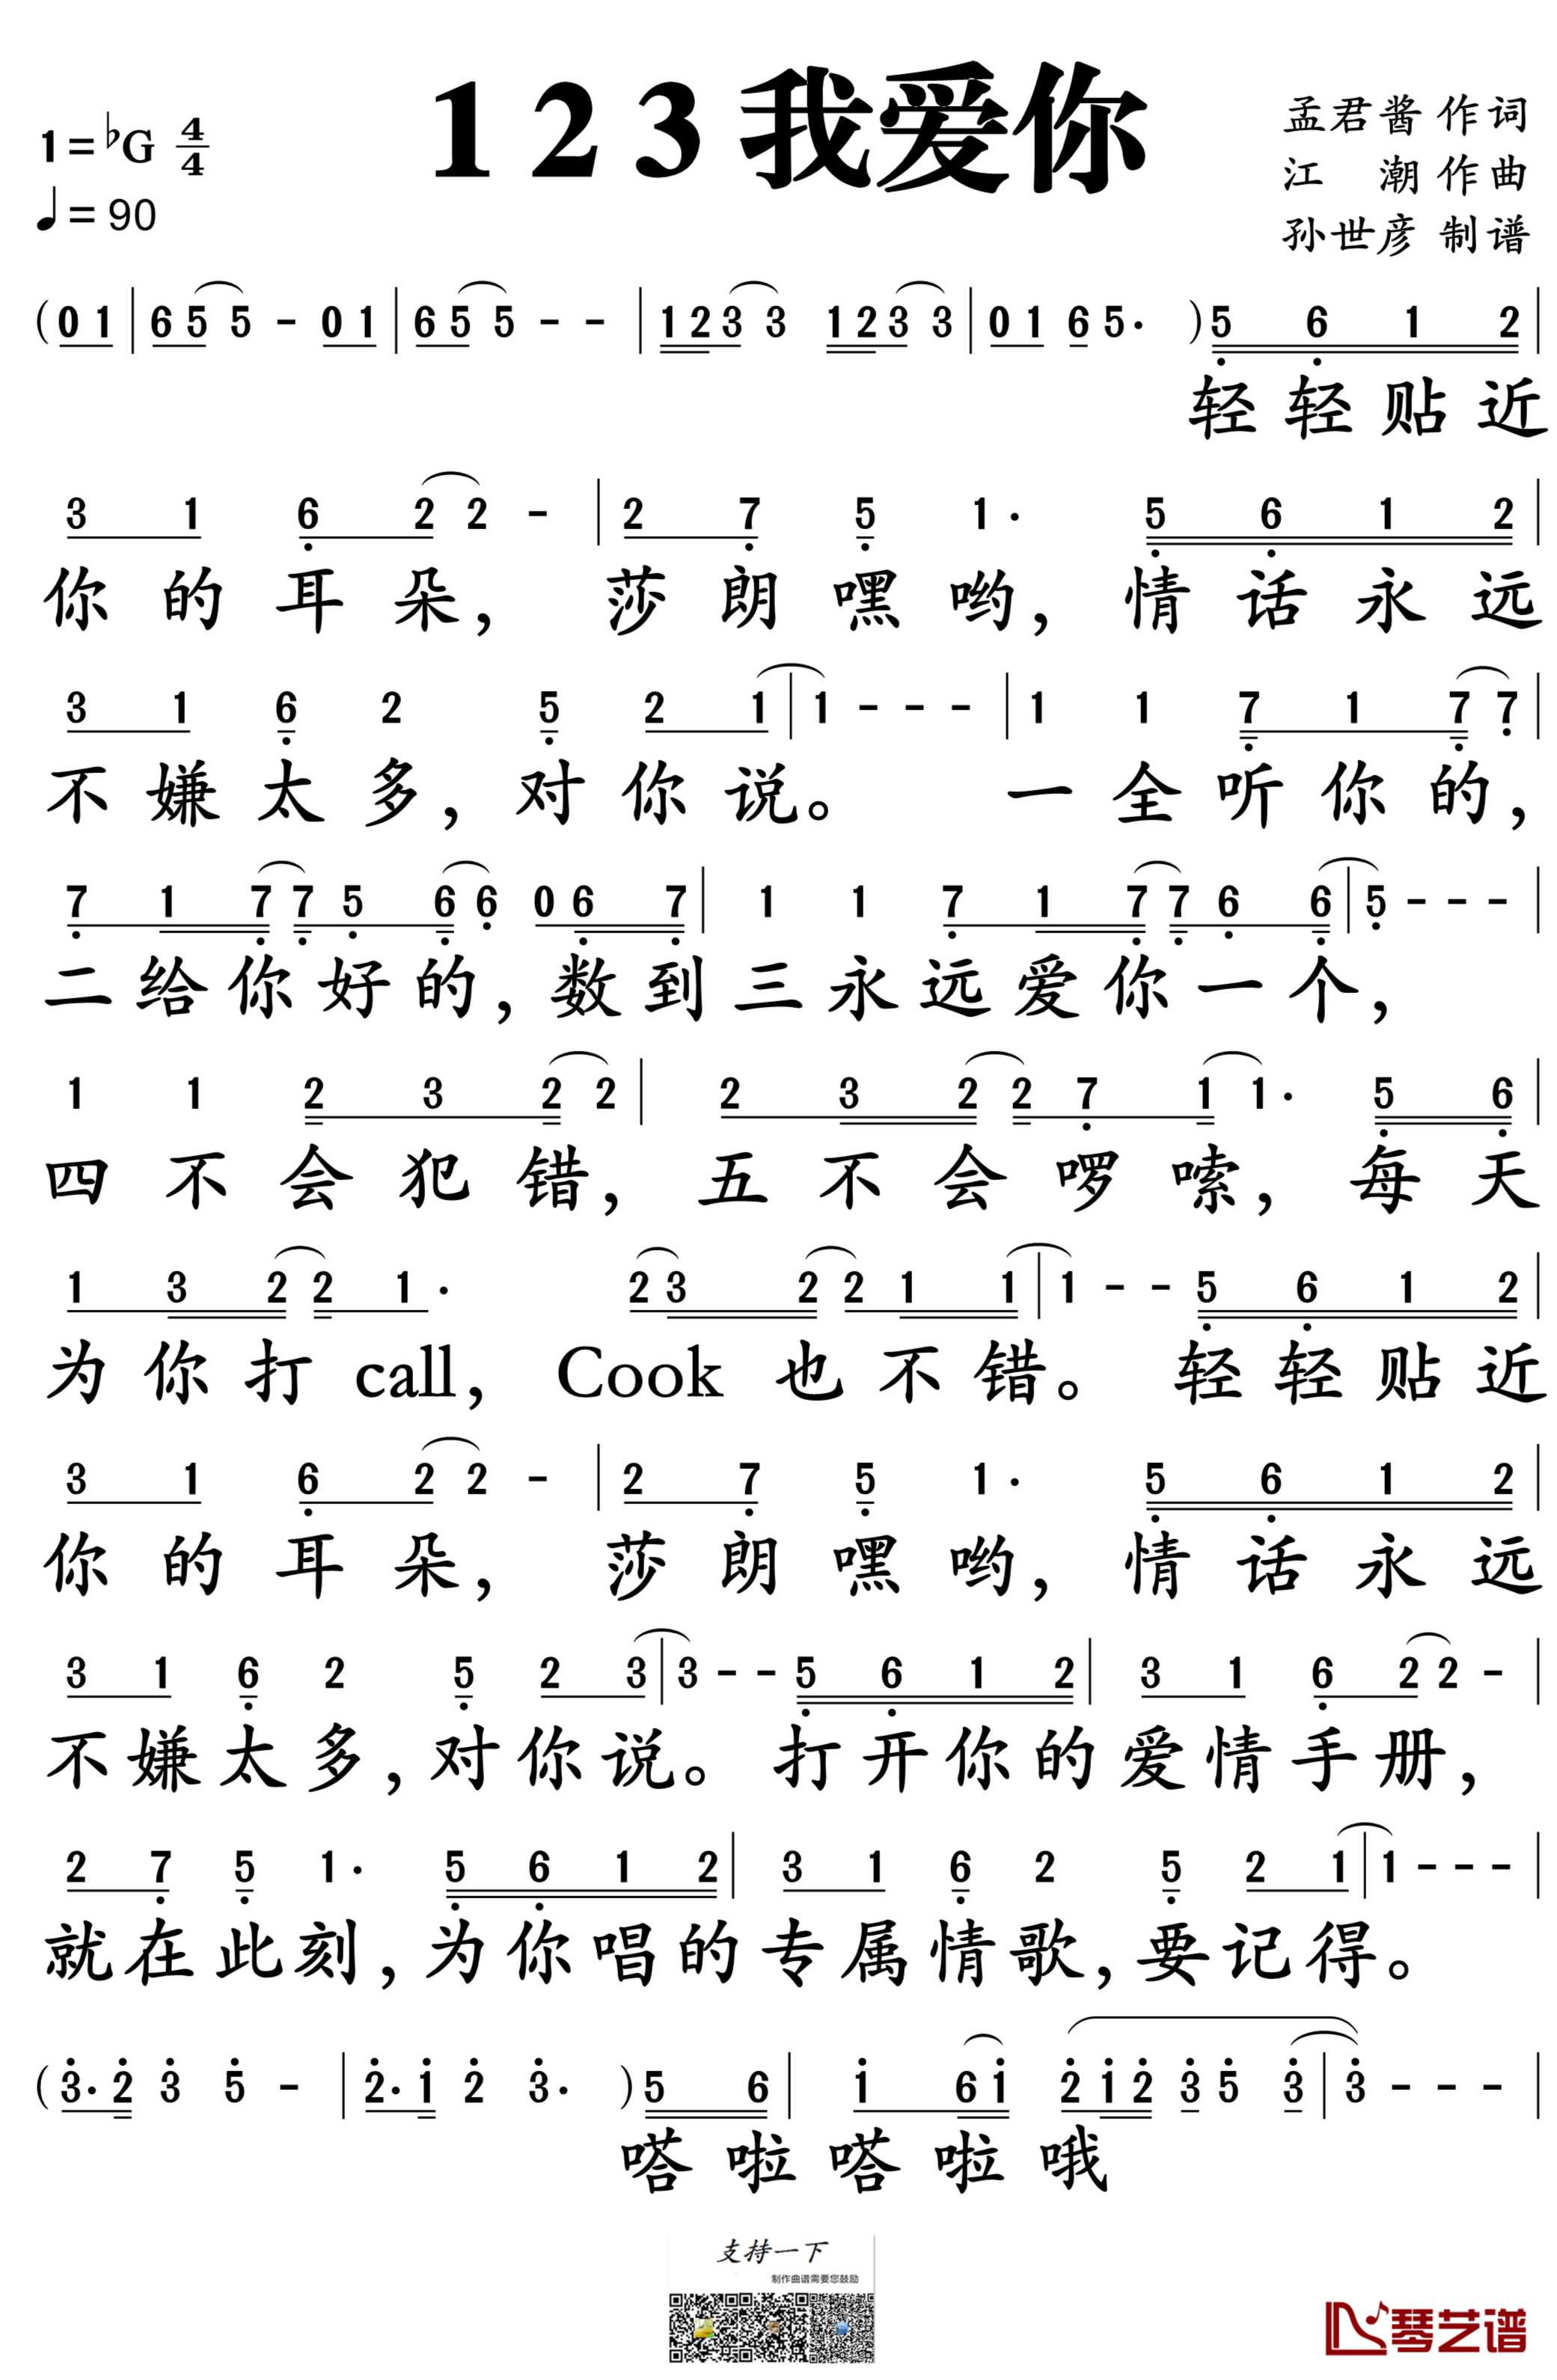 1 2 3 我爱你
1=♭G 4/4
♩= 90
孟君酱 作词
江 潮 作曲
孙世彦 制谱
(0 1 | 6 5 5 - 0 1 | 6 5 5 - - | 1 2 3 3 1 2 3 3 | 0 1 6 5· ) 5 6 1 2 |
轻 轻 贴 近
3 1 6 2 2 - | 2 7 5 1· 5 6 1 2 |
你 的 耳 朵， 莎 朗 嘿 哟， 情 话 永 远
3 1 6 2 5 2 1 | 1 - - - | 1 1 7 1 7 7 |
不 嫌 太 多， 对 你 说。 一 全 听 你 的，
7 1 7 7 5 6 6 0 6 7 | 1 1 7 1 7 7 6 6 | 5 - - - |
二 给 你 好 的， 数 到 三 永 远 爱 你 一 个，
1 1 2 3 2 2 | 2 3 2 2 7 1 1· 5 6 |
四 不 会 犯 错， 五 不 会 啰 嗦， 每 天
1 3 2 2 1· 2 3 2 2 1 1 | 1 - - 5 6 1 2 |
为 你 打 call， Cook 也 不 错。 轻 轻 贴 近
3 1 6 2 2 - | 2 7 5 1· 5 6 1 2 |
你 的 耳 朵， 莎 朗 嘿 哟， 情 话 永 远
3 1 6 2 5 2 3 | 3 - - 5 6 1 2 | 3 1 6 2 2 - |
不 嫌 太 多， 对 你 说。 打 开 你 的 爱 情 手 册，
2 7 5 1· 5 6 1 2 | 3 1 6 2 5 2 1 | 1 - - - |
就 在 此 刻， 为 你 唱 的 专 属 情 歌， 要 记 得。
( 3· 2 3 5 - | 2· 1 2 3· ) 5 6 | 1 6 1 2 1 2 3 5 3 | 3 - - - |
嗒 啦 嗒 啦 哦
支持一下
制作曲谱需要您鼓励
琴艺谱